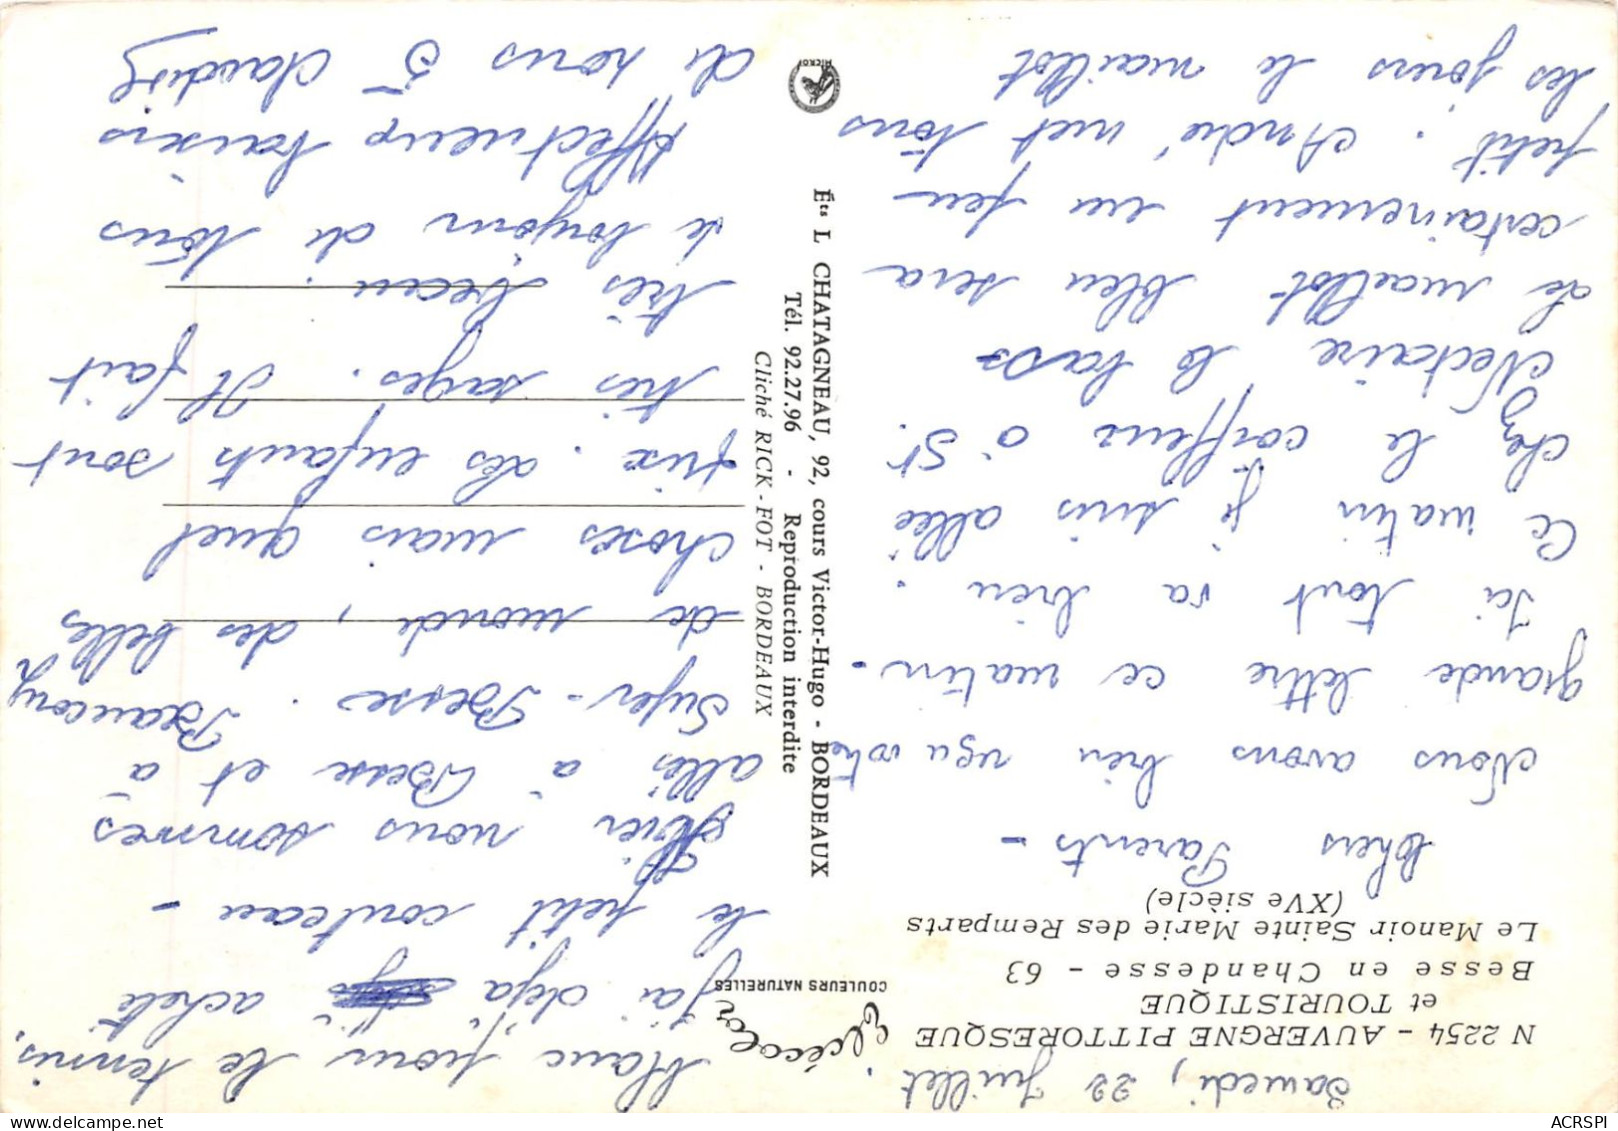 Samedi, 22 Juillet.
N 2254 - AUVERGNE PITTORESQUE
et TOURISTIQUE
Besse en Chandesse - 63
Le Manoir Sainte Marie des Remparts
(XVe siècle)
Chers Parents -
Nous avons bien reçu votre
grande lettre ce matin -
Ici tout va bien.
Ce matin je suis allée
chez le coiffeur à St.
Nectaire le bas
de maillot bleu sera
certainement un peu
petit. André met tous
les jours le maillot
blanc pour le tennis.
J'ai déjà acheté
le petit couteau -
Hier nous sommes
allés à Besse et à
Super-Besse. Beaucoup
de monde, des belles
choses mais quel
prix. Les enfants sont
très sages. Il fait
très beau.
le bonjour de tous
Affectueux baisers
de nous 5 Claudine
elcécolor
COULEURS NATURELLES
Éts L CHATAGNEAU, 92, cours Victor-Hugo - BORDEAUX
Tél. 92.27.96 - Reproduction interdite
Cliché RICK-FOT - BORDEAUX
ACRSPI